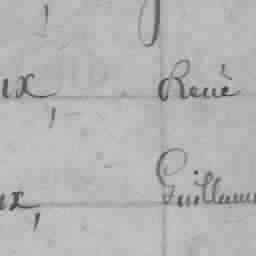 ux, René
ux, Guillaume